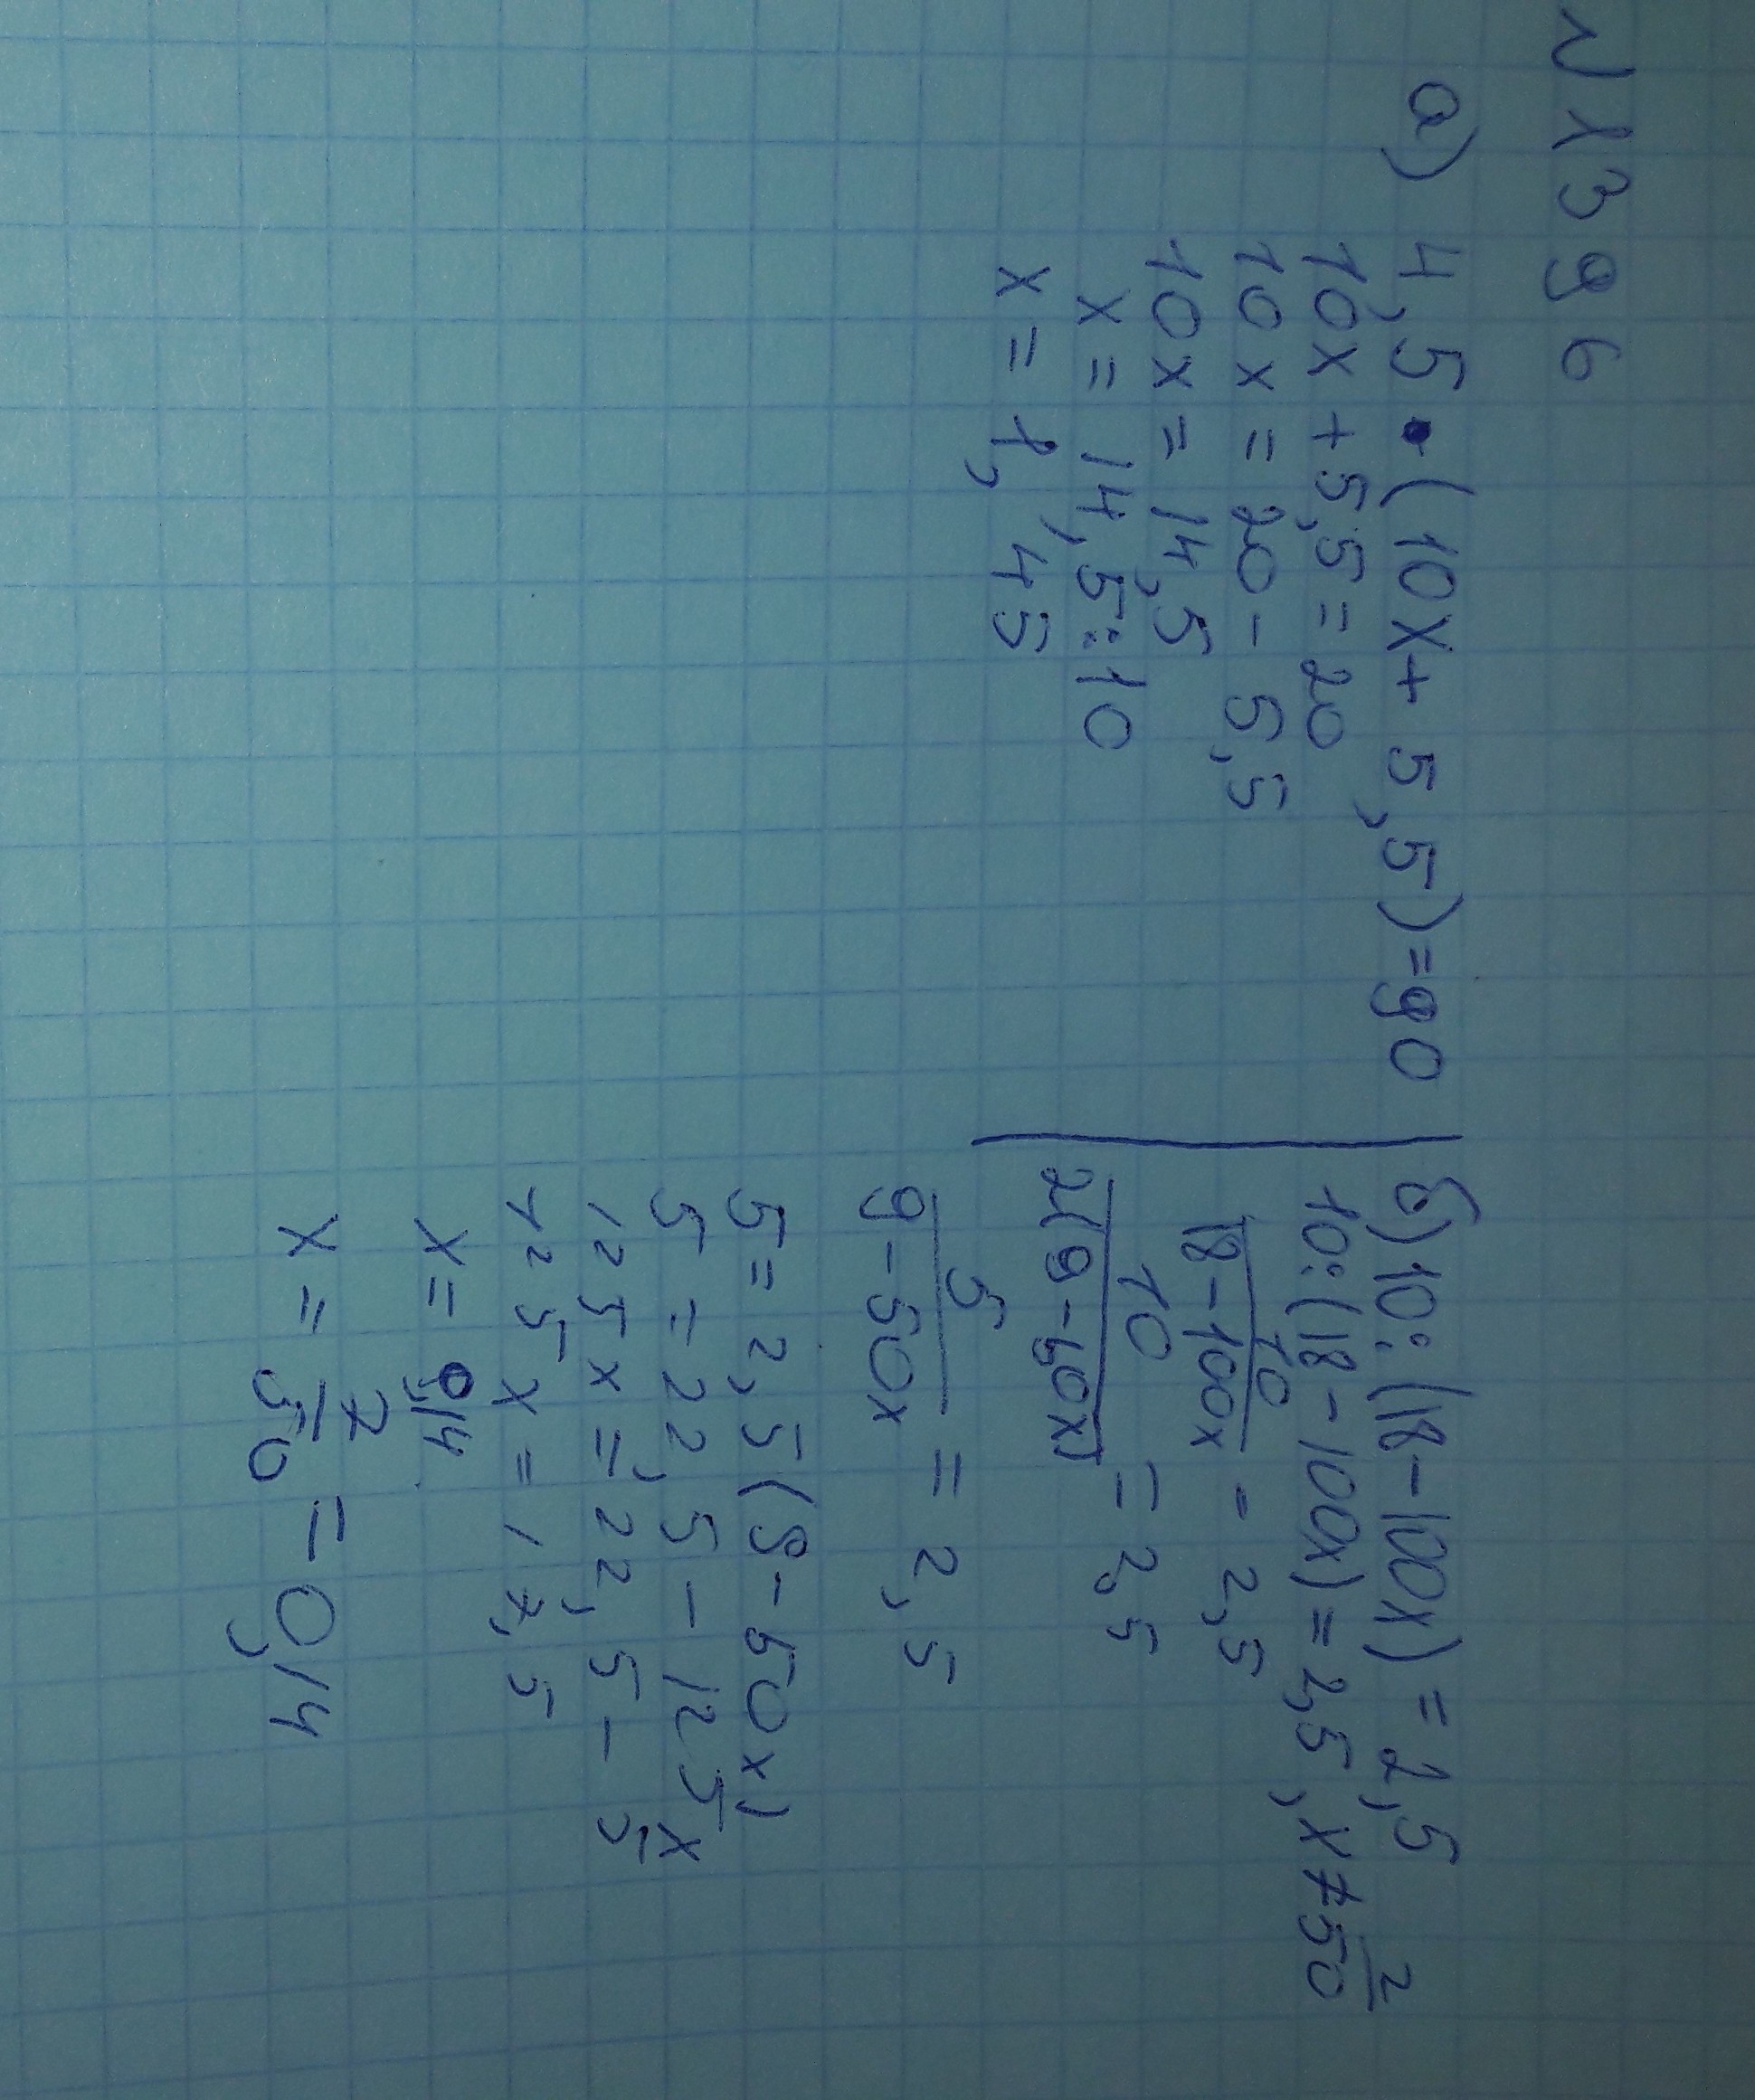 №1396
а) 4,5 • (10x + 5,5) = 90
10x + 5,5 = 20
10x = 20 - 5,5
10x = 14,5
x = 14,5 : 10
x = 1,45
б) 10 : (18 - 100x) = 2,5
10 : (18 - 100x) = 2,5, x ≠ 9/50
10/(18 - 100x) = 2,5
10/(2(9 - 50x)) = 2,5
5/(9 - 50x) = 2,5
5 = 2,5(9 - 50x)
5 = 22,5 - 125x
125x = 22,5 - 5
125x = 17,5
x = 0,14
x = 7/50 = 0,14